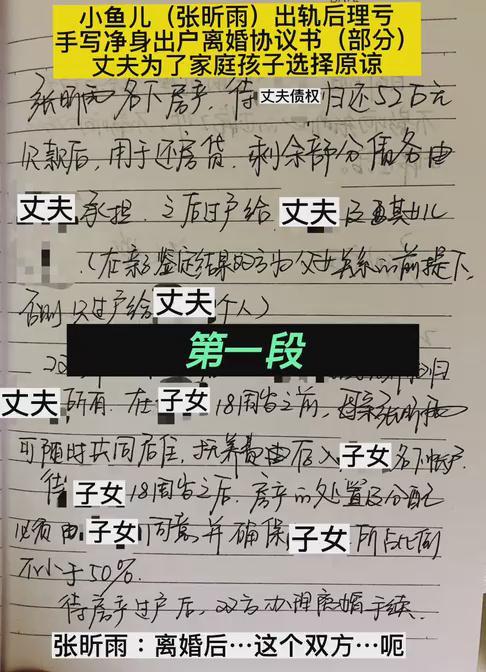 小鱼儿（张昕雨）出轨后理亏
手写净身出户离婚协议书（部分）
丈夫为了家庭孩子选择原谅
张昕雨名下房产，待丈夫债权归还52万元
欠款后，用于还房贷，剩余部分债务由
丈夫承担，之后过户给丈夫及其女儿
（在亲子鉴定结果双方为父女关系的前提下，
否则只过户给丈夫个人）
第一段
归
丈夫所有，在子女18周岁之前，母亲张昕雨
可随时共同居住，抚养费由存入子女名下帐户
待子女18周岁之后，房产的处置及分配
必须由子女同意并确保子女所占比例
不小于50%.
待房产过户后，双方办理离婚手续.
张昕雨：离婚后…这个双方…呃